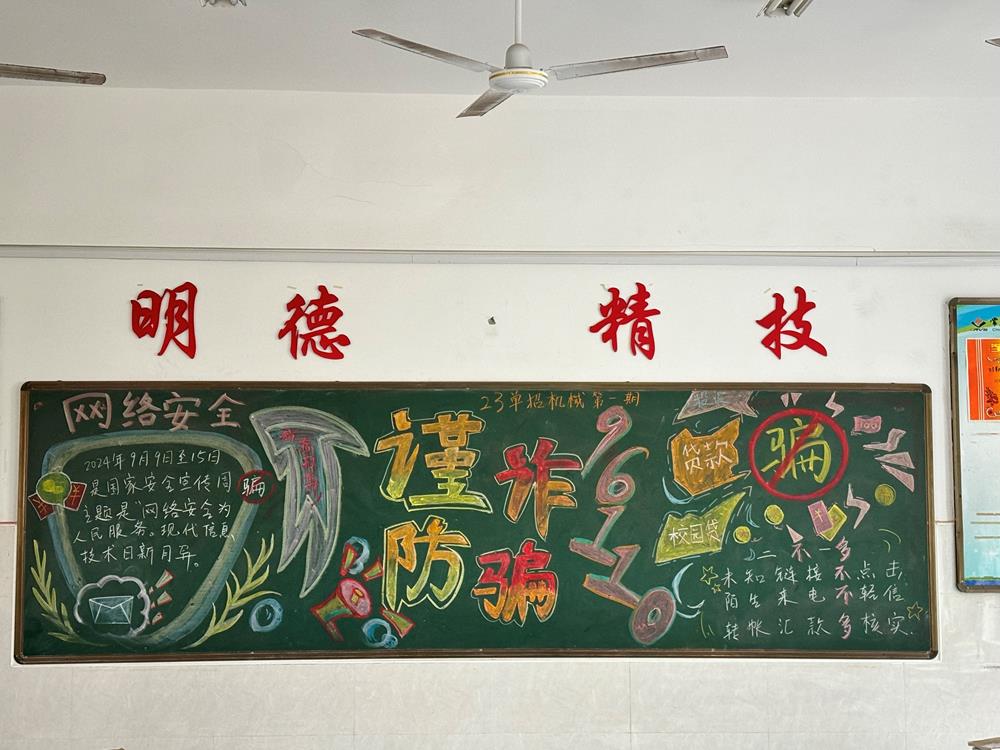 明德 精技
23单招机械第一期
网络安全
2024年9月9日至15日
是国家安全宣传周
主题是"网络安全为
人民服务。现代信息
技术日新月异。
骗
谨
防
诈
骗
96110
贷款
骗
校园贷
二不一多
未知链接不点击
陌生来电不轻信
转帐汇款多核实.